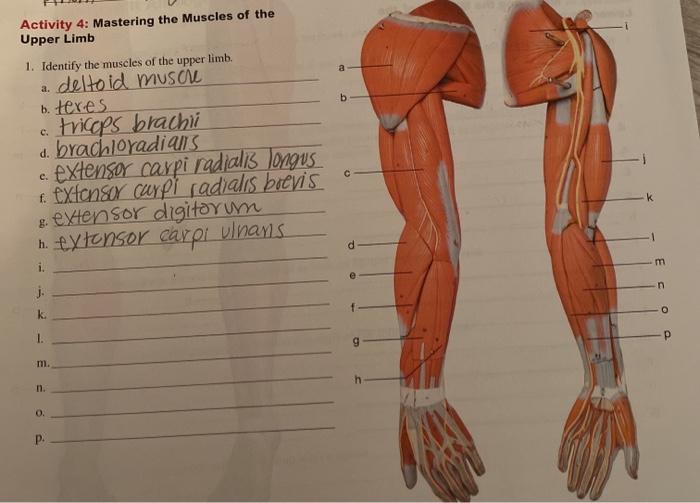 Activity 4: Mastering the Muscles of the
Upper Limb
1. Identify the muscles of the upper limb.
a. deltoid muscle
b. teres
c. triceps brachii
d. brachioradialis
e. extensor carpi radialis longus
f. extensor carpi radialis brevis
g. extensor digitorum
h. extensor carpi ulnaris
i.
j.
k.
l.
m.
n.
o.
p.
a
b
c
d
e
f
g
h
i
j
k
l
m
n
o
p